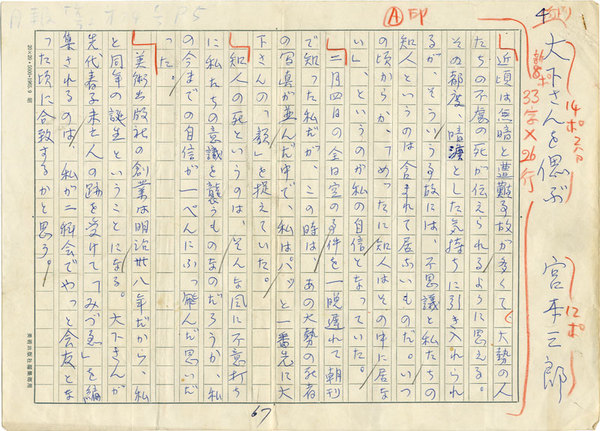 大下さんを偲ぶ
宮本三郎
14ポ
12ポ
33字×26行
近頃は無暗と遭難事故が多くて、大勢の人
たちの不慮の死が伝えられるように思える。
その都度、暗澹とした気持ちに引き入れられ
るが、そういう事故には、不思議と私たちの
知人というのは含まれて居ないものだ。いつ
の頃からか、「めったに知人はその中に居な
い」、というのが私の自信となっていた。
二月四日の全日空の事件を一晩遅れて朝刊
で知った私だが、この時は、あの大勢の死者
の写真が並んだ中で、私はパッと一番先に大
下さんの、「顔」を捉えていた。
知人の死というのは、そんな風に不意打ち
に私たちの意識を襲うものなのだろうか、私
の今までの自信が一ぺんにふっ飛んだ思いだ
った。
美術出版社の創業は明治卅八年だから、私
と同年の誕生ということになる。大下さんが
先代春子未亡人の跡を受けて「みづゑ」を編
集されるのは、私が二科会でやっと会友とな
った頃に合致するかと思う。
67